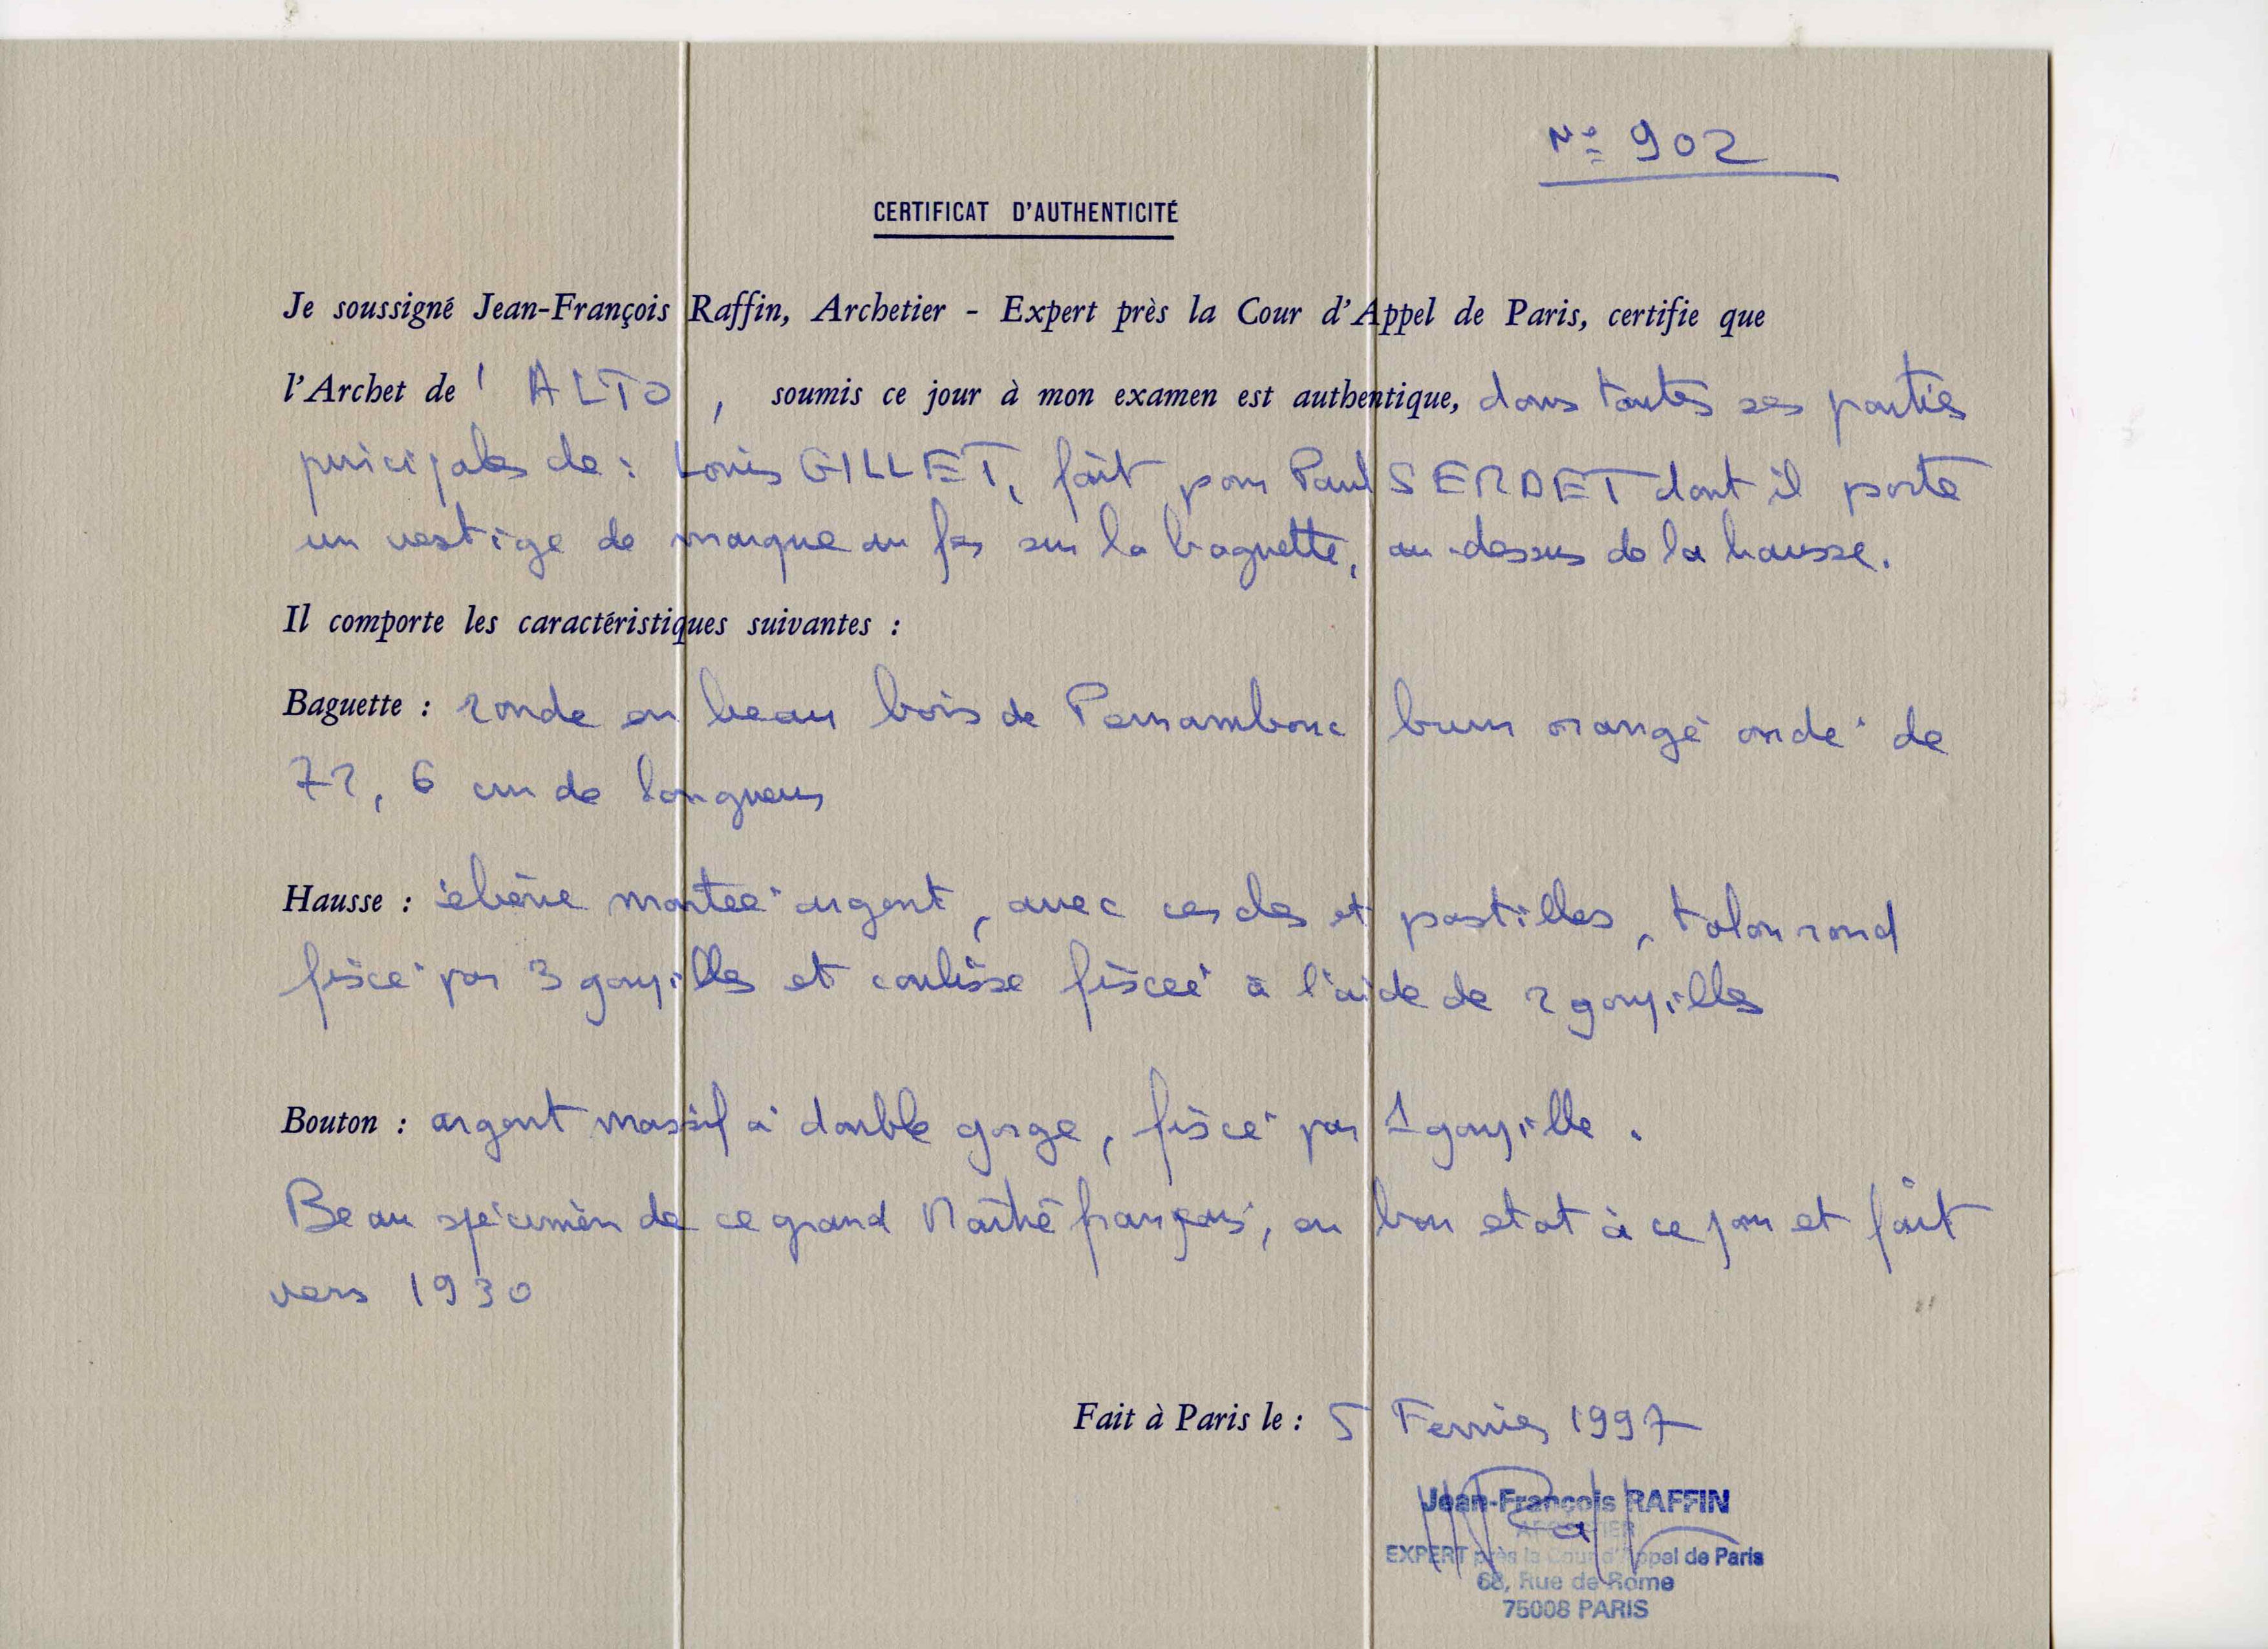 Nº 902
CERTIFICAT D'AUTHENTICITÉ
Je soussigné Jean-François Raffin, Archetier - Expert près la Cour d'Appel de Paris, certifie que
l'Archet de ' ALTO, soumis ce jour à mon examen est authentique, dans toutes ses parties
principales de : Louis GILLET, fait pour Paul SERDET dont il porte
un vestige de marque au fer sur la baguette, au-dessus de la hausse.
Il comporte les caractéristiques suivantes :
Baguette : ronde en beau bois de Pernambouc brun orangé ondé de
72, 6 cm de longueur
Hausse : ébène montée argent, avec cercles et pastilles, talon rond
fixcé par 3 goupilles et coulisse fixcée à l'aide de 2 goupilles
Bouton : argent massif à double gorge, fixcé par 1 goupille.
Beau spécimèn de ce grand Maître français, en bon etat à ce jour et fait
vers 1930
Fait à Paris le : 5 Fevrier 1997
Jean-François RAFFIN
ARCHETIER
EXPERT près la Cour d'Appel de Paris
68, Rue de Rome
75008 PARIS